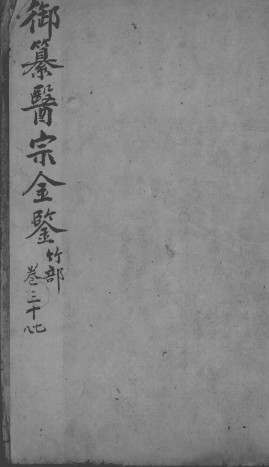 御纂醫宗金鑒
竹部
巻三十七八